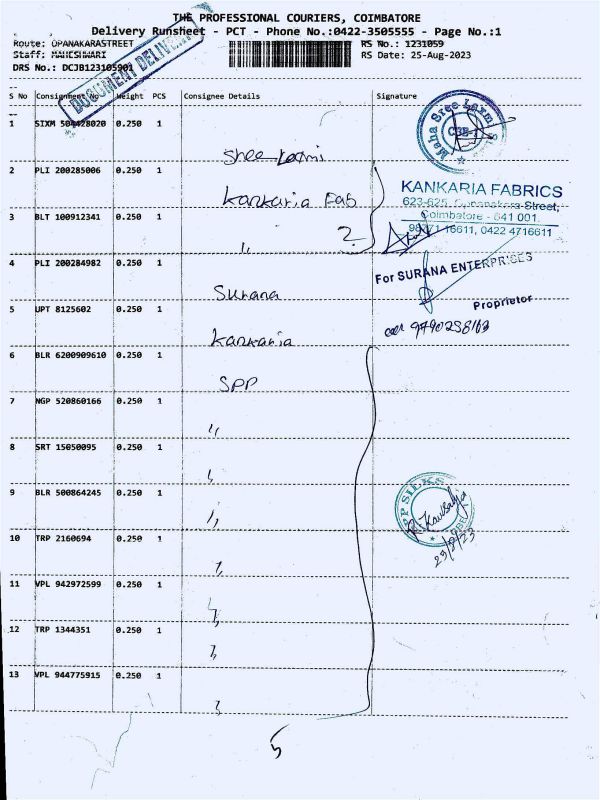 THE PROFESSIONAL COURIERS, COIMBATORE
Delivery Runsheet - PCT - Phone No.:0422-3505555 - Page No.:1
Route: OPANAKARASTREET RS No.: 1231059
Staff: MAHESHWARI RS Date: 25-Aug-2023
DRS No.: DCJB123105901
DOCUMENT DELIVERY
S No Consignment No Weight PCS Consignee Details Signature
1 SIXM 504428020 0.250 1 Shree Laxmi
Maha Sree Laxmi
CBE-1
2 PLI 200285006 0.250 1 Kankaria Fab
KANKARIA FABRICS
623-625, Opanakara Street,
Coimbatore - 641 001.
16611, 0422 4716611
3 BLT 100912341 0.250 1 " 2
4 PLI 200284982 0.250 1 Surana
For SURANA ENTERPRISES
Proprietor
9790258163
5 UPT 8125602 0.250 1 Kankaria
6 BLR 6200909610 0.250 1 SPP
7 NGP 520860166 0.250 1 "
8 SRT 15050095 0.250 1 "
9 BLR 500864245 0.250 1 "
SPP SILKS
R. Kausalya
10 TRP 2160694 0.250 1 "
11 VPL 942972599 0.250 1 "
12 TRP 1344351 0.250 1 "
13 VPL 944775915 0.250 1 "
5